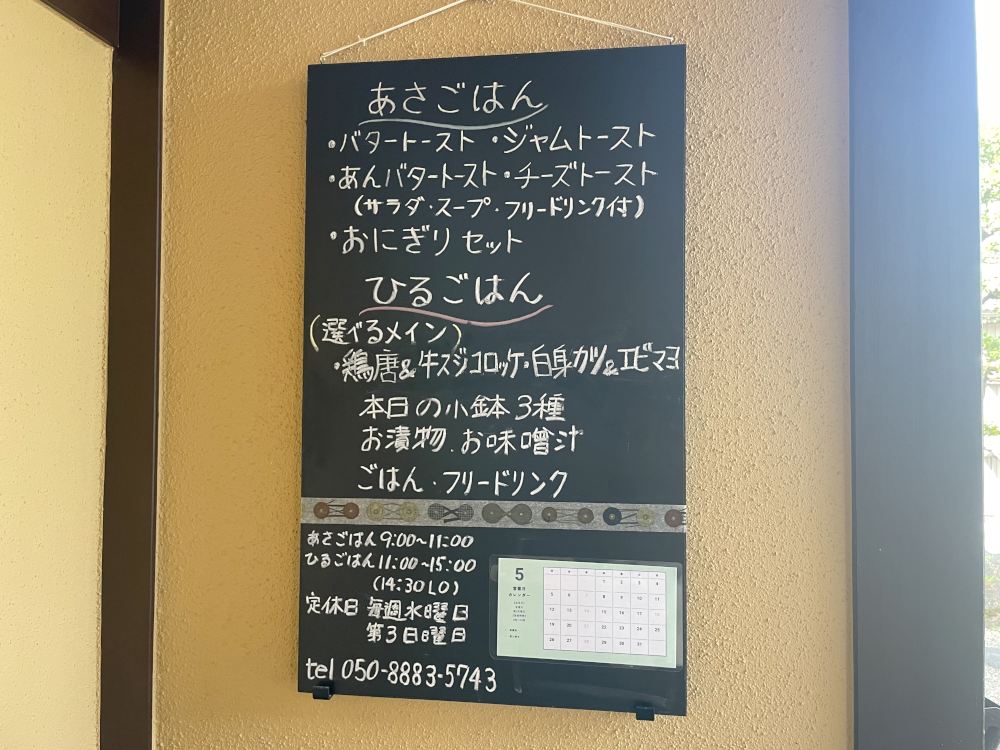 あさごはん
・バタートースト ・ジャムトースト
・あんバタートースト・チーズトースト
(サラダ・スープ・フリードリンク付)
・おにぎりセット
ひるごはん
(選べるメイン)
・鶏唐&牛スジコロッケ・白身カツ&エビマヨ
本日の小鉢3種
お漬物、お味噌汁
ごはん・フリードリンク
あさごはん 9:00~11:00
ひるごはん 11:00~15:00
(14:30 LO)
定休日 毎週水曜日
第3日曜日
tel 050-8883-5743
5
営業日
カレンダー
1 2 3 4
5 6 7 8 9 10 11
12 13 14 15 16 17 18
19 20 21 22 23 24 25
26 27 28 29 30 31